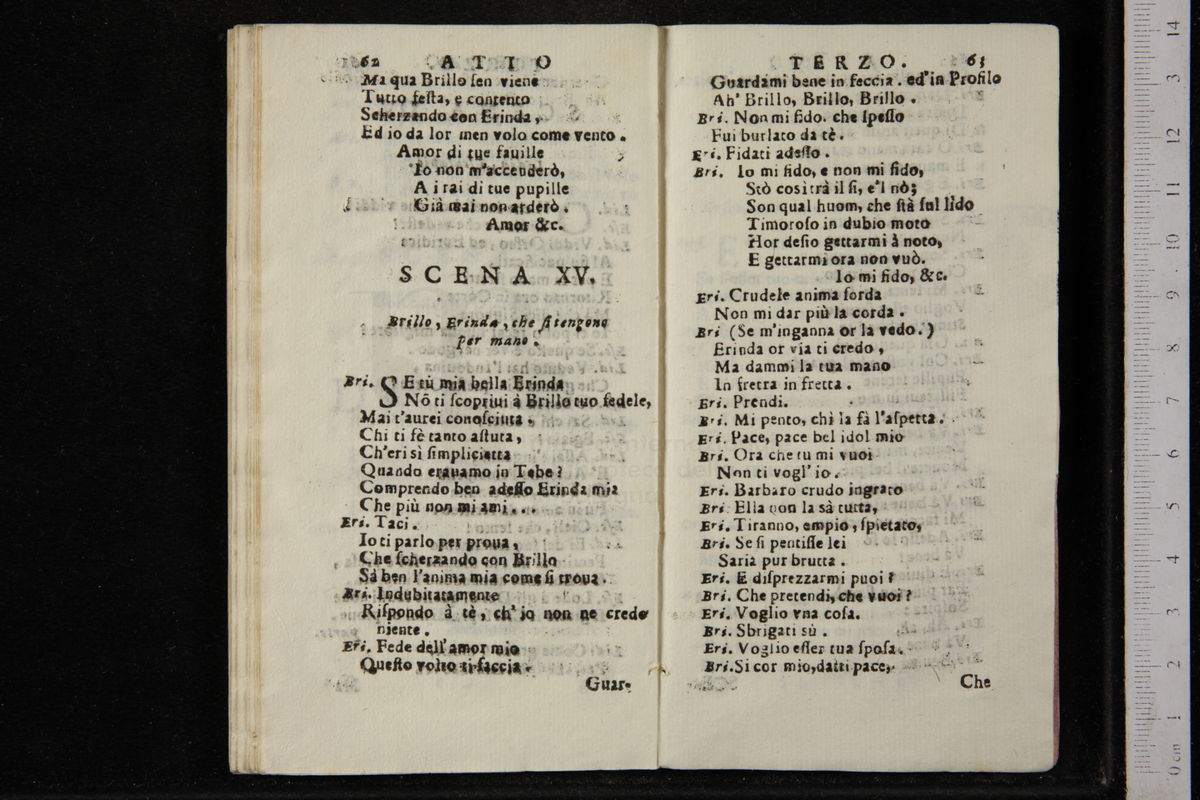 62 ATTO
Ma qua Brillo ſen viene
Tutto feſta, e contento
Scherzando con Erinda,
Ed io da lor men volo come vento.
Amor di tue fauille
Io non m'accenderò,
A i rai di tue pupille
Già mai non arderò.
Amor &c.
SCENA XV.
Brillo, Erinda, che ſi tengono
per mano.
Bri. SE tù mia bella Erinda
Nõ ti ſcopriui à Brillo tuo fedele,
Mai t'aurei conoſciuta,
Chi ti fè tanto aſtuta,
Ch'eri sì ſimplicietta
Quando erauamo in Tebe?
Comprendo ben adeſſo Erinda mia
Che più non mi ami...
Eri. Taci.
Io ti parlo per proua,
Che ſcherzando con Brillo
Sà ben l'anima mia come ſi troua.
Bri. Indubitatamente
Riſpondo à tè, ch'io non ne credo
niente.
Eri. Fede dell'amor mio
Queſto volto ti faccia.
Guar-
TERZO. 63
Guardami bene in feccia. ed'in Profilo
Ah' Brillo, Brillo, Brillo.
Bri. Non mi fido. che ſpeſſo
Fui burlato da tè.
Eri. Fidati adeſſo.
Bri. Io mi fido, e non mi fido,
Stò così trà il ſi, e'l nò;
Son qual huom, che ſtà ſul lido
Timoroſo in dubio moto
Hor deſio gettarmi à noto,
E gettarmi ora non vuò.
Io mi fido, &c.
Eri. Crudele anima ſorda
Non mi dar più la corda.
Bri (Se m'inganna or la vedo.)
Erinda or via ti credo,
Ma dammi la tua mano
In fretra in fretta.
Eri. Prendi.
Bri. Mi pento, chi la fà l'aſpetta.
Eri. Pace, pace bel idol mio
Bri. Ora che tu mi vuoi
Non ti vogl' io.
Eri. Barbaro crudo ingrato
Bri. Ella non la sà tutta,
Eri. Tiranno, empio, ſpietato,
Bri. Se ſi pentiſſe lei
Saria pur brutta.
Eri. E diſprezzarmi puoi?
Bri. Che pretendi, che vuoi?
Eri. Voglio vna coſa.
Bri. Sbrigati sù.
Eri. Voglio eſſer tua ſpoſa.
Bri. Si cor mio, datti pace,
Che
0 cm 1 2 3 4 5 6 7 8 9 10 11 12 3 14